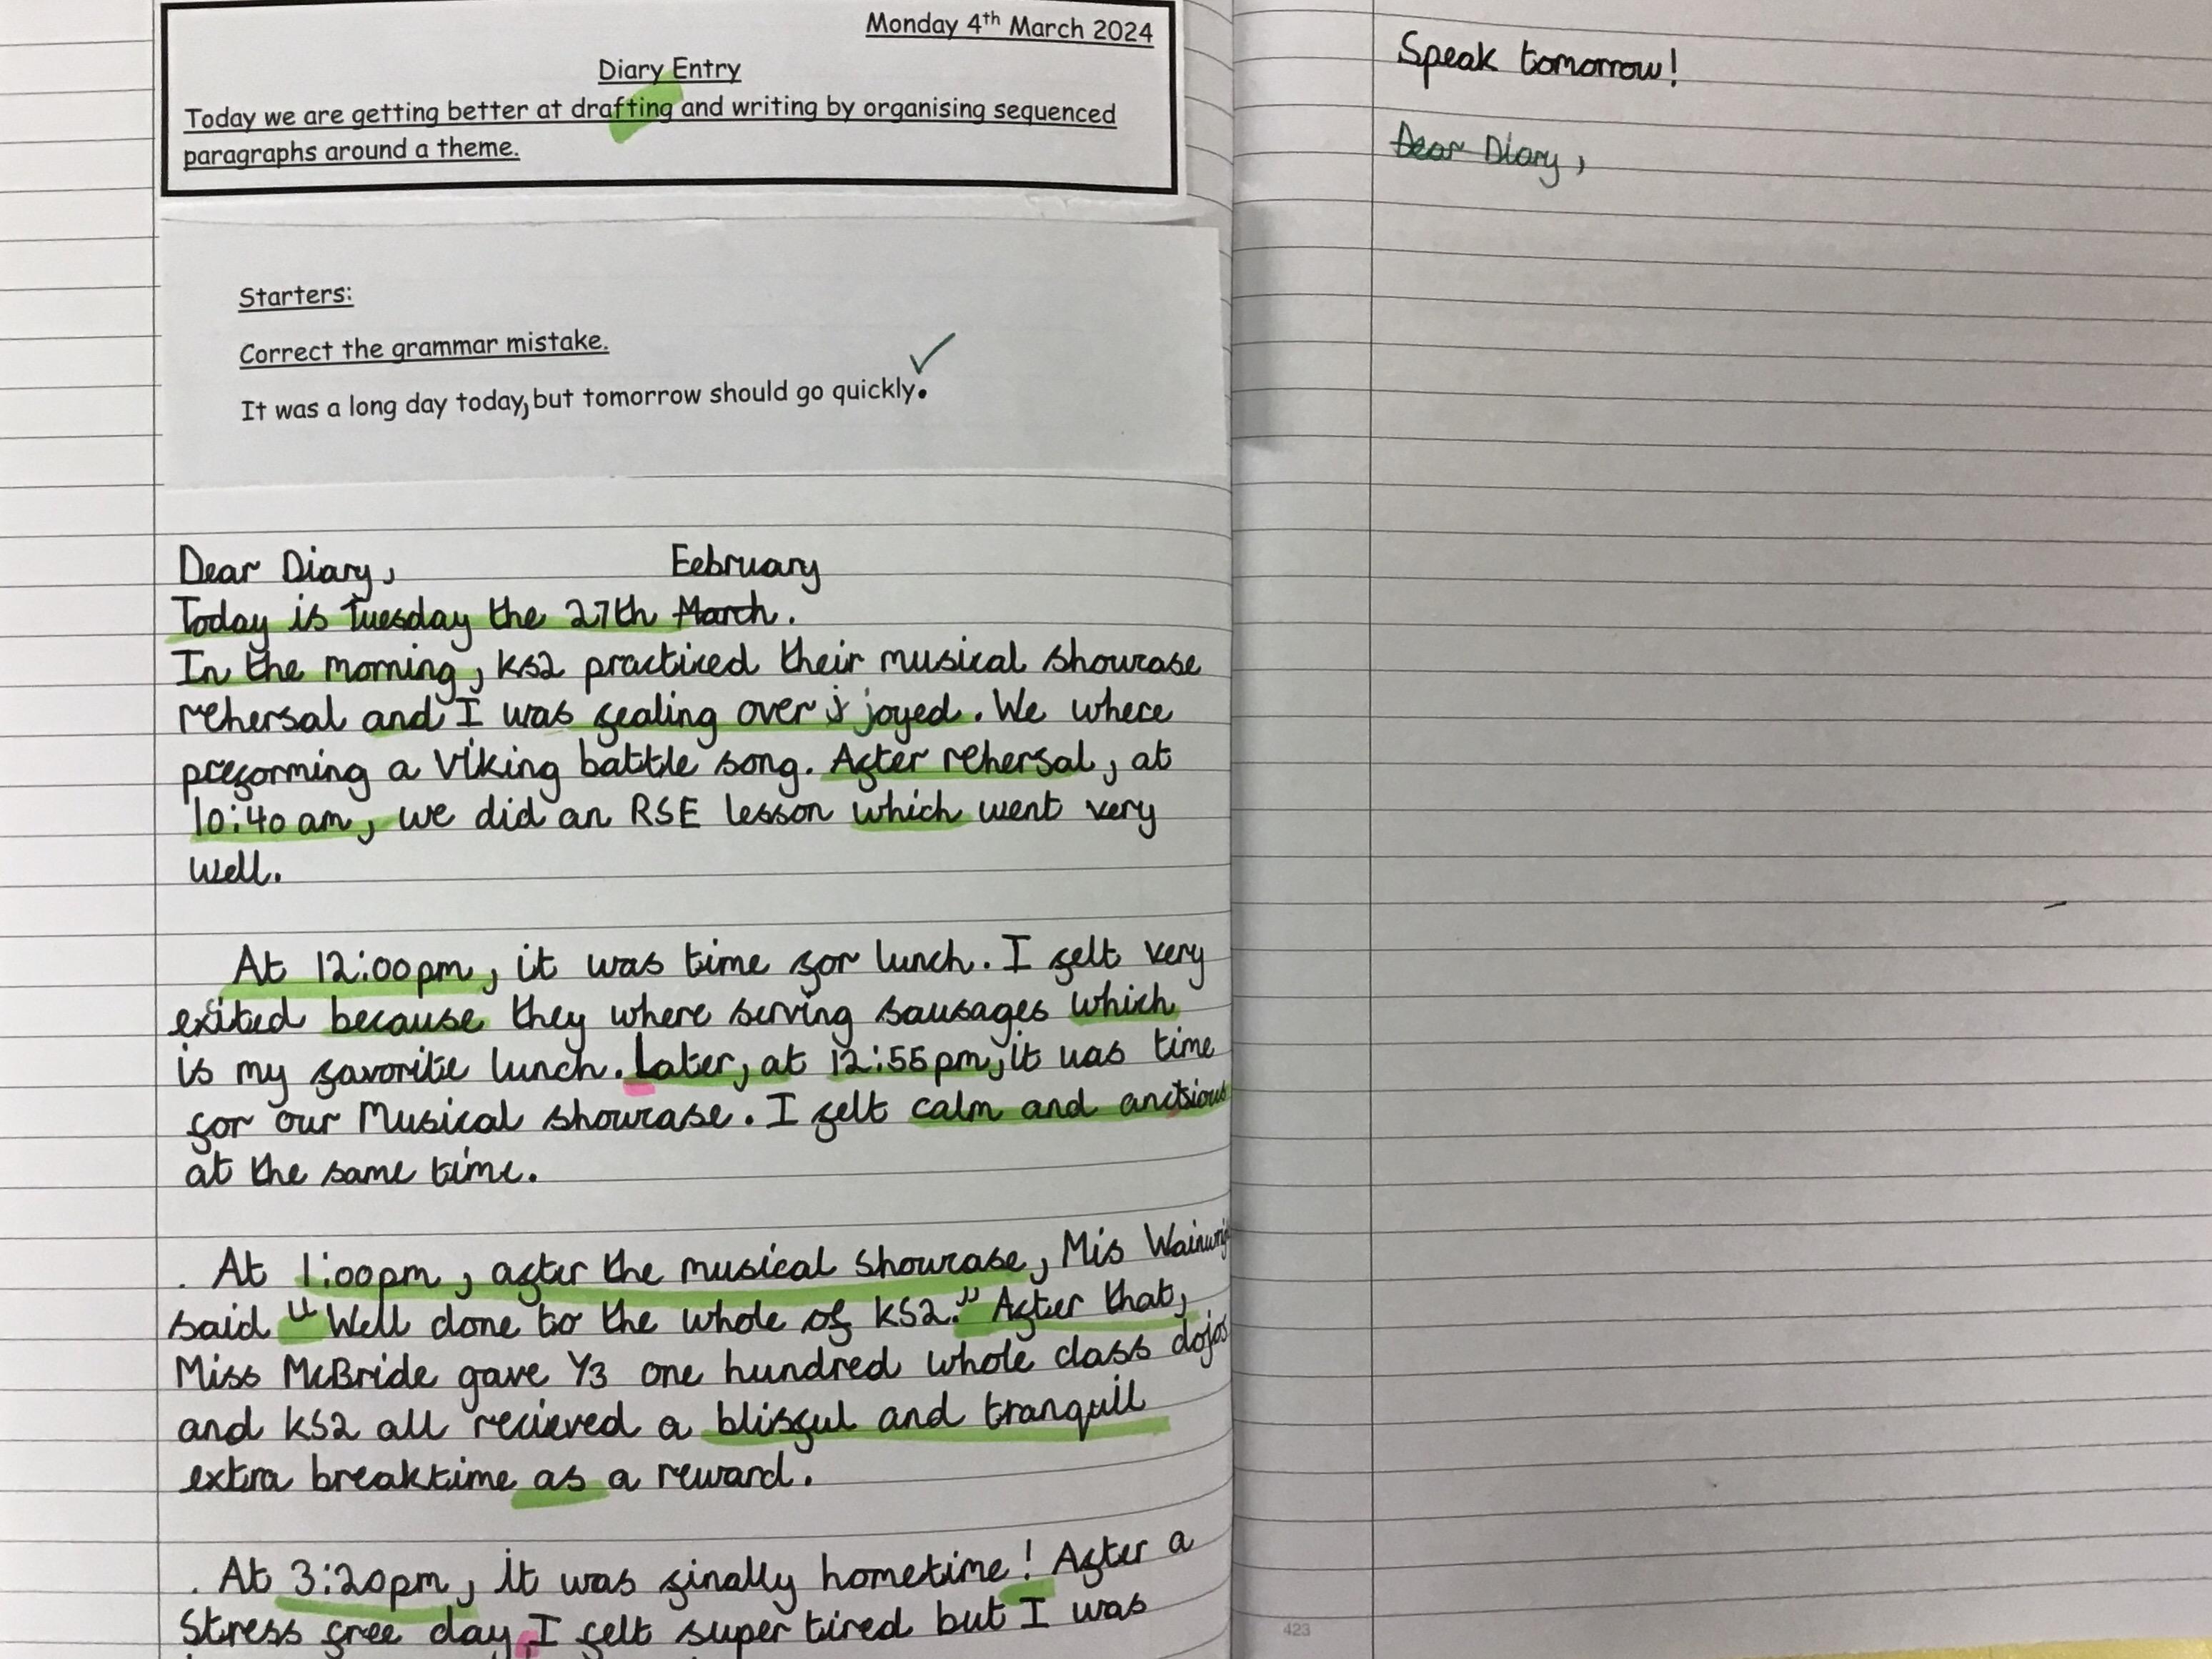 Monday 4th March 2024
Diary Entry
Today we are getting better at drafting and writing by organising sequenced
paragraphs around a theme.
Starters:
Correct the grammar mistake.
It was a long day today, but tomorrow should go quickly.
Dear Diary, Eebruary
Today is Tuesday the 27th March.
In the morning, KS2 practiced their musical showcase
rehersal and I was fealing over j joyed. We where
preforming a Viking battle song. After rehersal, at
10:40am, we did an RSE lesson which went very
well.
At 12:00pm, it was time for lunch. I felt very
exited because they where serving sausages which
is my favorite lunch. Later, at 12:55pm, it was time
for our Musical showcase. I felt calm and anctsious
at the same time.
. At 1:00pm, after the musical showcase, Mis
said "Well done to the whole of KS2." After that,
Miss McBride gave Y3 one hundred whole class dojos
and KS2 all recieved a blisful and tranquil
extra breaktime as a reward.
. At 3:20pm, it was finally hometime! After a
stress free day, I felt super tired but I was
Speak tomorrow!
Dear Diary,
423